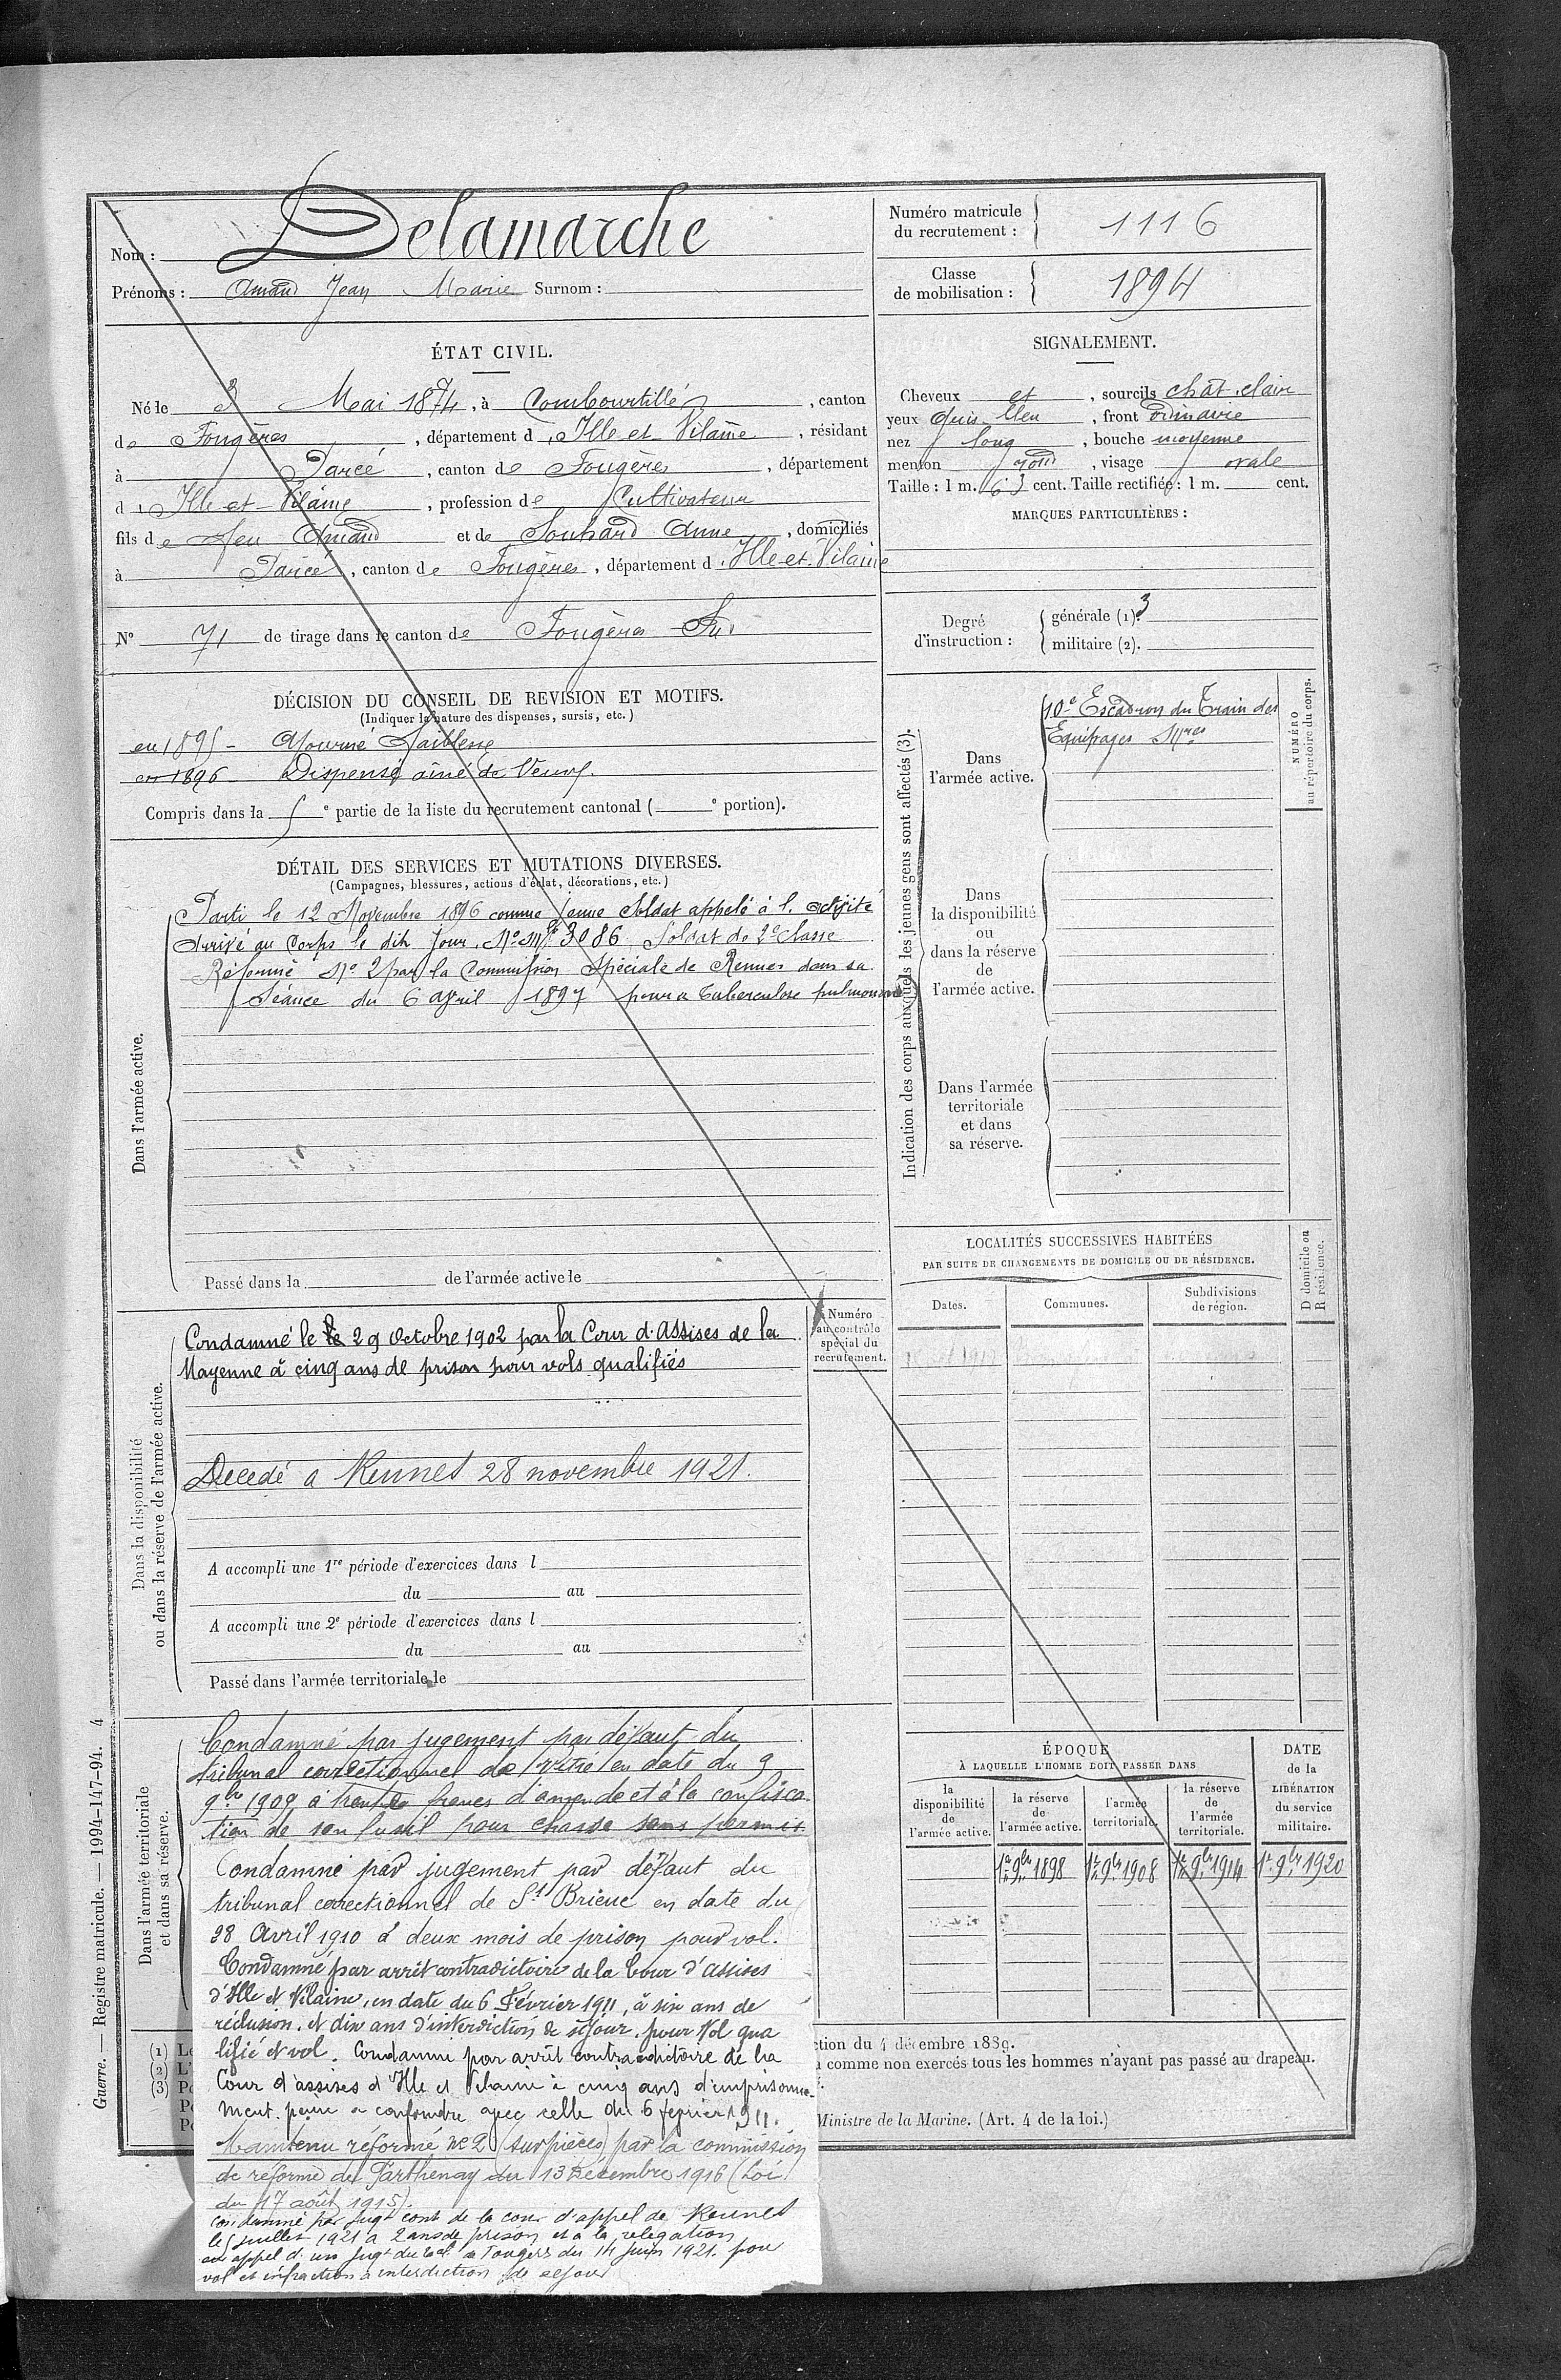 Nom : Delamarche
Prénoms : Amand Jean Marie Surnom :
Numéro matricule
du recrutement : 1116
Classe
de mobilisation : 1894
ÉTAT CIVIL.
Né le 3 Mai 1874, à Combourtillé, canton
de Fougères, département d'Ille et Vilaine, résidant
à Parcé, canton de Fougères, département
d'Ille et Vilaine, profession de Cultivateur
fils de feu Amand et de Souhard Anne, domiciliés
à Parcé, canton de Fougères, département d'Ille et Vilaine
N° 71 de tirage dans le canton de Fougères Sud
SIGNALEMENT.
Cheveux et, sourcils chat clair
yeux Gris bleu, front ordinaire
nez long, bouche moyenne
menton rond, visage ovale
Taille : 1 m. 63 cent. Taille rectifiée : 1 m. cent.
MARQUES PARTICULIÈRES :
Degré
d'instruction :
générale (1). 3
militaire (2).
DÉCISION DU CONSEIL DE REVISION ET MOTIFS.
(Indiquer la nature des dispenses, sursis, etc.)
en 1895 - Ajourné Faiblesse
en 1896 Dispensé aîné de Veuve.
Compris dans la 5e partie de la liste du recrutement cantonal ( e portion).
DÉTAIL DES SERVICES ET MUTATIONS DIVERSES.
(Campagnes, blessures, actions d'éclat, décorations, etc.)
Dans l'armée active.
Parti le 12 Novembre 1896 comme jeune Soldat appelé à l'activité
Arrivé au Corps le dit jour. No Mle 3086 Soldat de 2e classe
Réformé No 2 par la Commission Spéciale de Rennes dans sa
Séance du 6 avril 1897 pour Tuberculose pulmonaire
Passé dans la de l'armée active le
Indication des corps auxquels les jeunes gens sont affectés (3).
Dans
l'armée active.
10e Escadron du Train des
Equipages Mres
NUMÉRO
au répertoire du corps.
Dans
la disponibilité
ou
dans la réserve
de
l'armée active.
Dans l'armée
territoriale
et dans
sa réserve.
Dans la disponibilité
ou dans la réserve de l'armée active.
Condamné le 29 Octobre 1902 par la Cour d'Assises de la
Mayenne à cinq ans de prison pour vols qualifiés
Décédé a Rennes 28 novembre 1921.
A accompli une 1re période d'exercices dans l
du au
A accompli une 2e période d'exercices dans l
du au
Passé dans l'armée territoriale le
Numéro
au contrôle
spécial du
recrutement.
LOCALITÉS SUCCESSIVES HABITÉES
PAR SUITE DE CHANGEMENTS DE DOMICILE OU DE RÉSIDENCE.
Dates.
Communes.
Subdivisions
de région.
D domicile ou
R résidence.
Dans l'armée territoriale
et dans sa réserve.
Condamné par jugement par défaut du
tribunal correctionnel de Vitré en date du 9
9bre 1909 à trente francs d'amende et à la confisca
tion de son fusil pour chasse sans permis
Condamné par jugement par défaut du
tribunal correctionnel de St Brieuc en date du
28 Avril 1910 à deux mois de prison pour vol.
Condamné par arrêt contradictoire de la Cour d'assises
d'Ille et Vilaine, en date du 6 Février 1911, à six ans de
réclusion et dix ans d'interdiction de séjour pour Vol qua
lifié et vol. Condamné par arrêt contradictoire de la
Cour d'assises d'Ille et Vilaine à cinq ans d'emprisonne-
ment. peine a confondre avec celle du 6 février 1911.
Maintenu réformé no 2 (sur pièces) par la commission
de réforme de Parthenay du 13 Décembre 1916 (Loi
du 17 août 1915).
condamné par jugt cont de la cour d'appel de Rennes
le 5 juillet 1921 a 2 ans de prison et a la relégation
sur appel d'un jugt du tal de Fougères du 14 juin 1921 pour
vol et infraction a interdiction de séjour
ÉPOQUE
À LAQUELLE L'HOMME DOIT PASSER DANS
la
disponibilité
de
l'armée active.
la réserve
de
l'armée active.
l'armée
territoriale.
la réserve
de
l'armée
territoriale.
DATE
de la
LIBÉRATION
du service
militaire.
1er 9bre 1898
1er 9bre 1908
1er 9bre 1914
1er 9bre 1920
(1) L
(2) L'
(3) P
ction du 4 décembre 1889.
comme non exercés tous les hommes n'ayant pas passé au drapeau.
Ministre de la Marine. (Art. 4 de la loi.)
Guerre. — Registre matricule. — 1994-147-94. 4